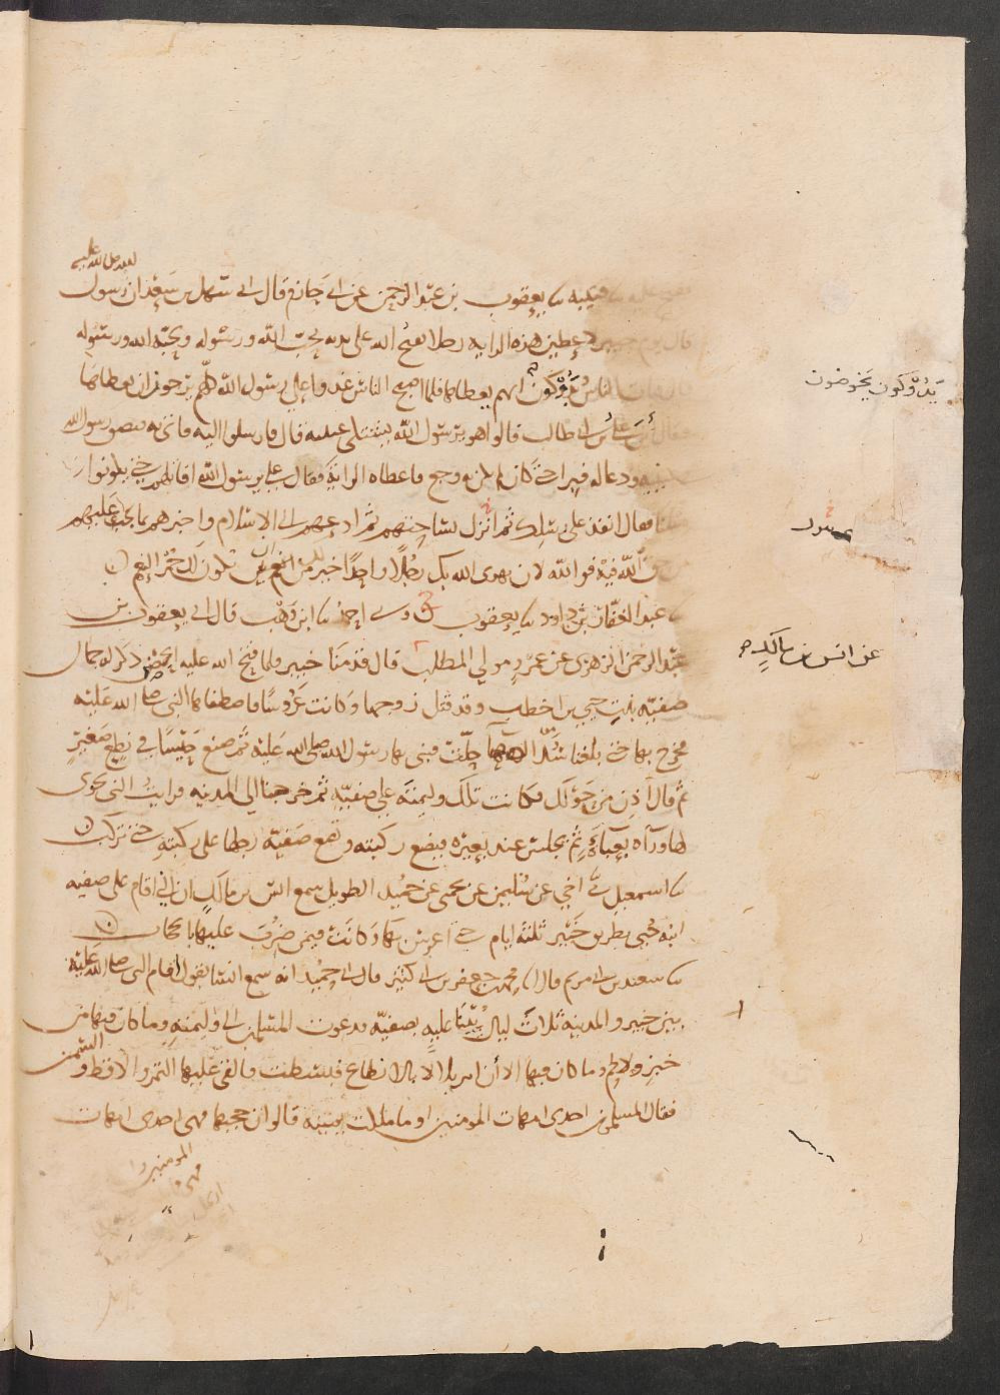 لله صلى الله عليه
قتيبة نا يعقوب بن عبد الرحمن عن ابي حازم قال اني سهل بن سعد ان رسول
قال يوم خيبر لاعطين هذه الراية رجلا يفتح الله على يديه يحب الله ورسوله ويحبه الله ورسوله
فبات الناس يدوكون ايهم يعطاها فلما اصبح الناس غدوا على رسول الله كلهم يرجون ان يعطاها
فقال اين علي بن ابي طالب قالوا هو يرسول الله يشتكي عينيه قال فارسلوا اليه فاتي به فبصق رسول الله
عينيه ودعا له فبرا حتى كان لم يكن به وجع فاعطاه الراية فقال علي يرسول الله اقاتلهم حتى يكونوا
مثلنا فقال انفذ على رسلك ثم انزل بساحتهم ثم ادعهم الى الاسلام واخبرهم بما يجب عليهم
من حق الله فيه فوالله لان يهدي الله بك رجلا واحدا خير لك من ان تكون لك حمر النعم
نا عبد الغفار بن داود نا يعقوب ح وني احمد نا ابن وهب قال اني يعقوب بن
عبد الرحمن الزهري عن عمرو مولى المطلب قال قدمنا خيبر فلما فتح الله عليه الحصن ذكر له جمال
صفية بنت حيي بن اخطب وقد قتل زوجها وكانت عروسا فاصطفاها النبي صلى الله عليه
فخرج بها حتى بلغنا سد حلت فبنى بها رسول الله صلى الله عليه ثم صنع حيسا في نطع صغير
ثم قال اذن من حولك فكانت تلك وليمته على صفية ثم خرجنا الى المدينه فرايت النبي يحوي
لها وراه بعباءة ثم يجلس عند بعيره فيضع ركبته وتضع صفية رجلها على ركبته حتى تركب
نا اسمعيل ني اخي عن سليمن عن يحيى عن حميد الطويل سمع انس بن مالك ان النبي اقام على صفيه
ابنه حيي بطريق خيبر ثلثة ايام حتى اعرس بها وكانت فيمن ضرب عليها بالحجاب
نا سعيد بن ابي مريم قال انا محمد بن جعفر بن ابي كثير قال اني حميد انه سمع انسا يقول اقام النبي صلى الله عليه
بين خيبر والمدينه ثلاث ليال يبنا عليه بصفية فدعوت المسلمين الى وليمته وما كان فيها من
خبز ولا لحم وما كان فيها الا ان امر بلالا بالانطاع فبسطت فالقى عليها التمر والاقط والسمن
فقال المسلمون احدى امهات المومنين او ما ملكت يمينه قالوا ان حجبها فهي احدى امهات
المومنين
يدوكون يخوضون
عن انس بن مالك